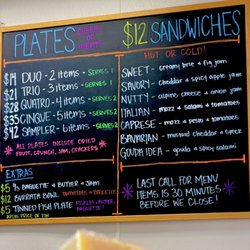 PLATES
CHEESE
OR
MEAT!
$14 DUO - 2 items - SERVES 1
$21 TRIO - 3 items - SERVES 1-2
$28 QUATRO - 4 items - SERVES 2
$35 CINQUE - 5 items - SERVES
$42 SAMPLER - 6 items - SERVES
* ALL PLATES INCLUDE DRIED
FRUIT, CRUNCH, JAM, CRACKERS *
EXTRAS
$5 1/2 BAGUETTE & BUTTER & JAM
$12 BURRATA BOWL TOMATOES + BAGUETTE
$5 TINNED FISH PLATE PICKLES
BAGUETTE!
PLUS PRICE OF TIN
$12 SANDWICHES
HOT OR COLD!
SWEET - creamy brie & fig jam
SAVORY - cheddar & spicy apple jam
NUTTY - alpine cheese & onion jam
ITALIAN - mozz, salami & tomatoes
CAPRESE - mozz, pesto & tomatoes
BAVARIAN - mustard cheddar &
GOUDA IDEA - gouda & spicy salami
* LAST CALL FOR MENU
ITEMS IS 30 MINUTES
BEFORE WE CLOSE!